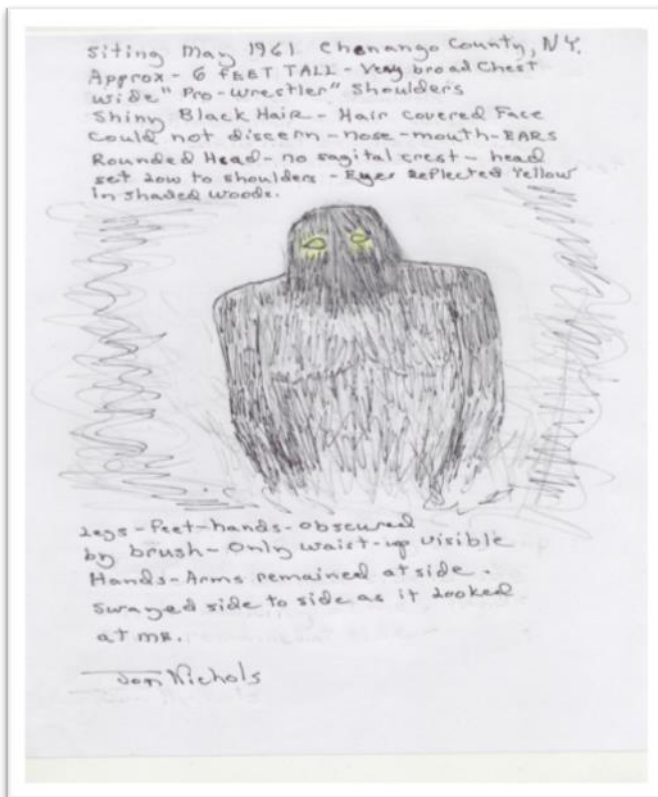 Siting May 1961 Chenango County, NY.
Approx - 6 FEET TALL - Very broad Chest
wide "Pro-wrestler" Shoulders
Shiny Black Hair - Hair covered Face
Could not discern - nose - mouth - EARS
Rounded Head - no sagital crest - head
set low to shoulders - Eyes Reflected Yellow
in shaded woods.
Legs - Feet - hands - obscured
by brush - Only waist-up visible
Hands - Arms remained at side.
Swayed side to side as it looked
at me.
Nichols